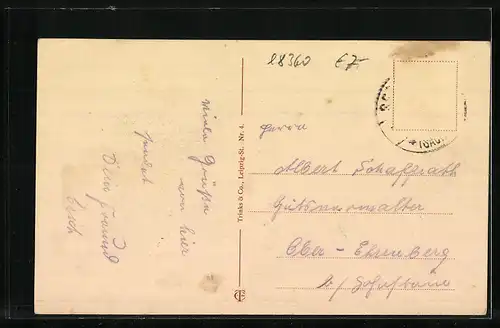 28360 €7.-
Viele Grüße
von hier
sendet
Dein Freund
Trinks & Co., Leipzig-St. Nr. 4.
Herrn
Albert Schaffrath
Gutsverwalter
Ober-Ehrenberg
b/